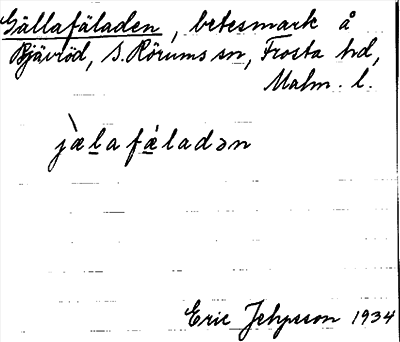 Gällafäladen, betesmark å
Bjävröd, S. Rörums sn, Frosta hd,
Malm. l.
jæ̀lafǽladən
Eric Jehpsson 1934